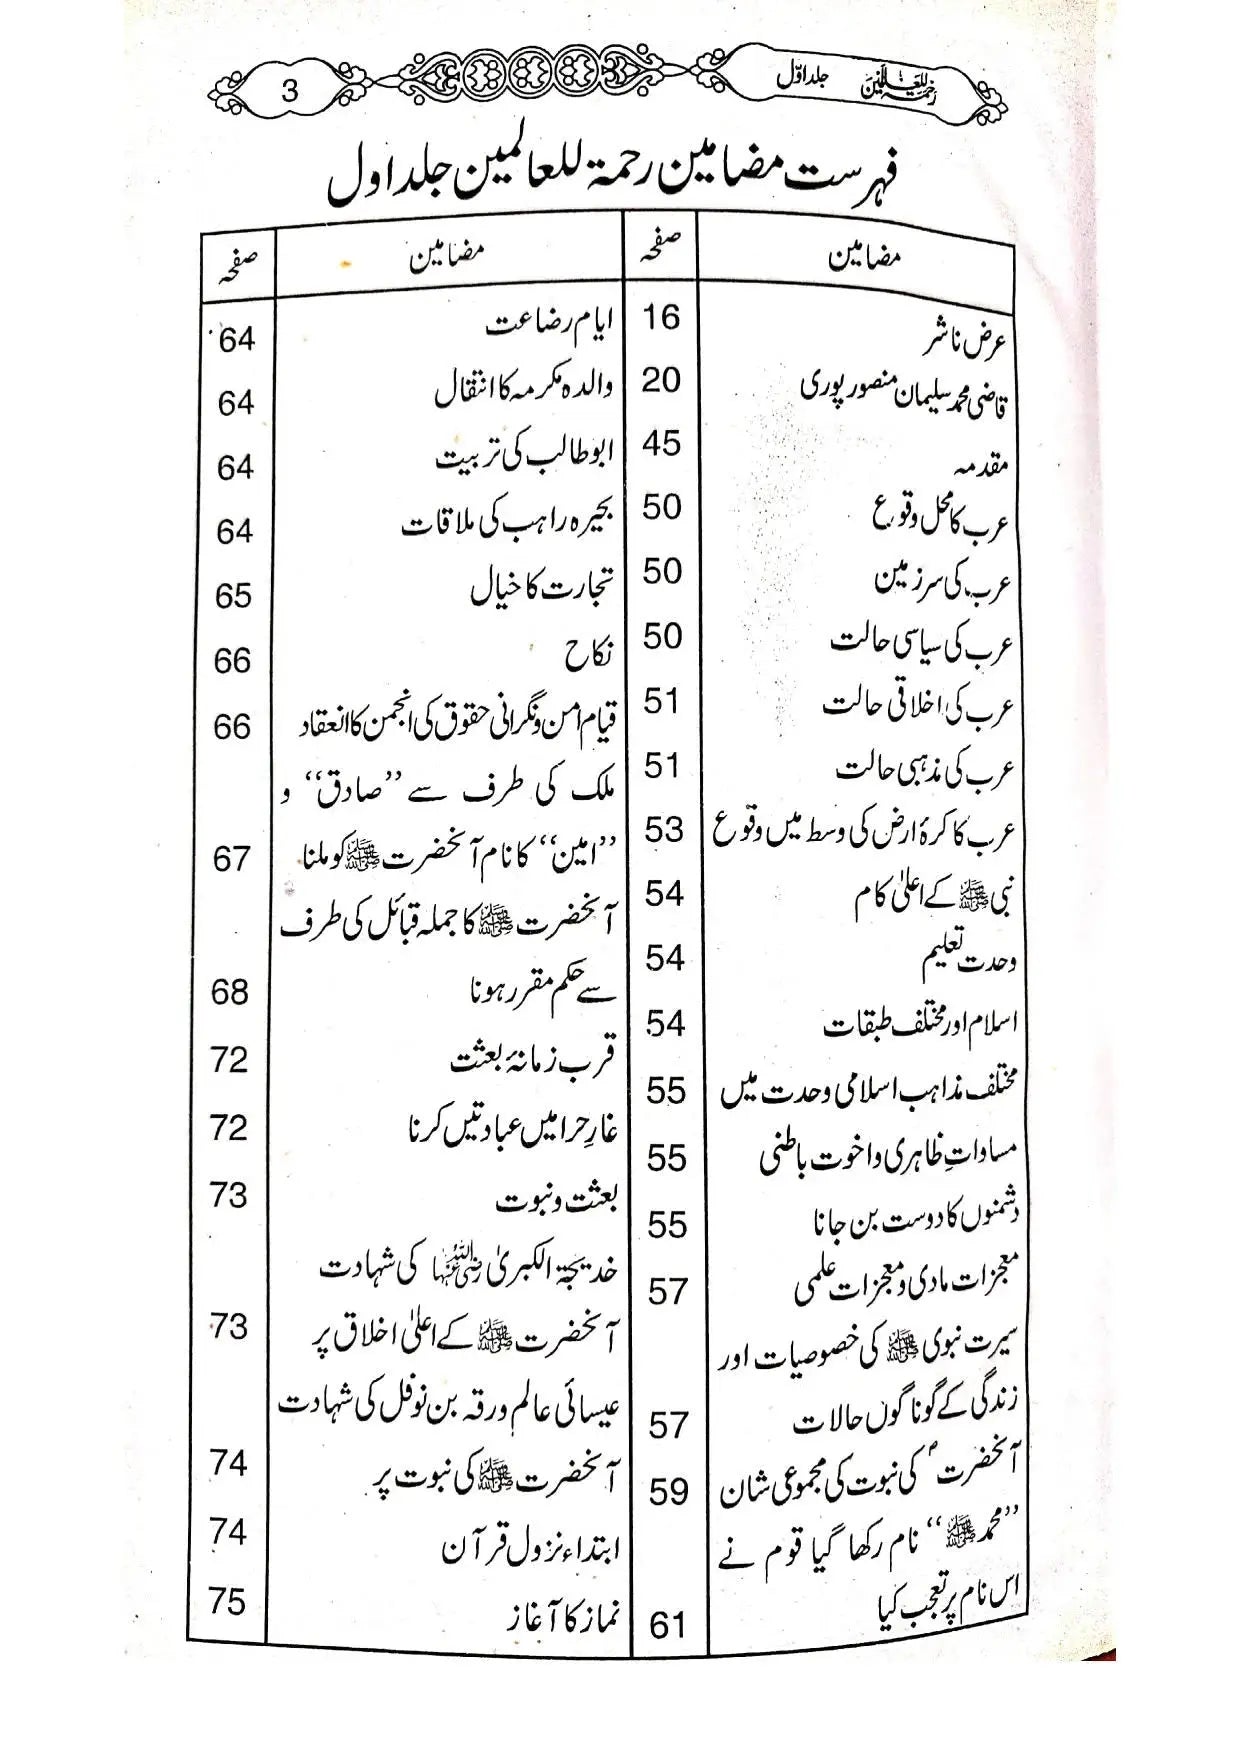 رحمۃ للعالمین جلد اوّل 3
فہرست مضامین رحمۃ للعالمین جلد اول
مضامین صفحہ
عرض ناشر 16
قاضی محمد سلیمان منصور پوری 20
مقدمہ 45
عرب کا محل وقوع 50
عرب کی سرزمین 50
عرب کی سیاسی حالت 50
عرب کی اخلاقی حالت 51
عرب کی مذہبی حالت 51
عرب کا کرۂ ارض کی وسط میں وقوع 53
نبی ﷺ کے اعلیٰ کام 54
وحدت تعلیم 54
اسلام اور مختلف طبقات 54
مختلف مذاہب اسلامی وحدت میں 55
مساواتِ ظاہری و اخوت باطنی 55
دشمنوں کا دوست بن جانا 55
معجزات مادی و معجزات علمی 57
سیرت نبوی ﷺ کی خصوصیات اور
زندگی کے گوناگوں حالات 57
آنحضرتؐ کی نبوت کی مجموعی شان 59
”محمد ﷺ“ نام رکھا گیا قوم نے
اس نام پر تعجب کیا 61
مضامین صفحہ
ایام رضاعت 64
والدہ مکرمہ کا انتقال 64
ابوطالب کی تربیت 64
بحیرہ راہب کی ملاقات 64
تجارت کا خیال 65
نکاح 66
قیام امن و نگرانی حقوق کی انجمن کا انعقاد 66
ملک کی طرف سے ”صادق“ و
”امین“ کا نام آنحضرت ﷺ کو ملنا 67
آنحضرت ﷺ کا جملہ قبائل کی طرف
سے حکم مقرر ہونا 68
قرب زمانۂ بعثت 72
غارِ حرا میں عبادتیں کرنا 72
بعثت و نبوت 73
خدیجۃ الکبریٰ رضی اللہ عنہا کی شہادت
آنحضرت ﷺ کے اعلیٰ اخلاق پر 73
عیسائی عالم ورقہ بن نوفل کی شہادت
آنحضرت ﷺ کی نبوت پر 74
ابتداء نزول قرآن 74
نماز کا آغاز 75